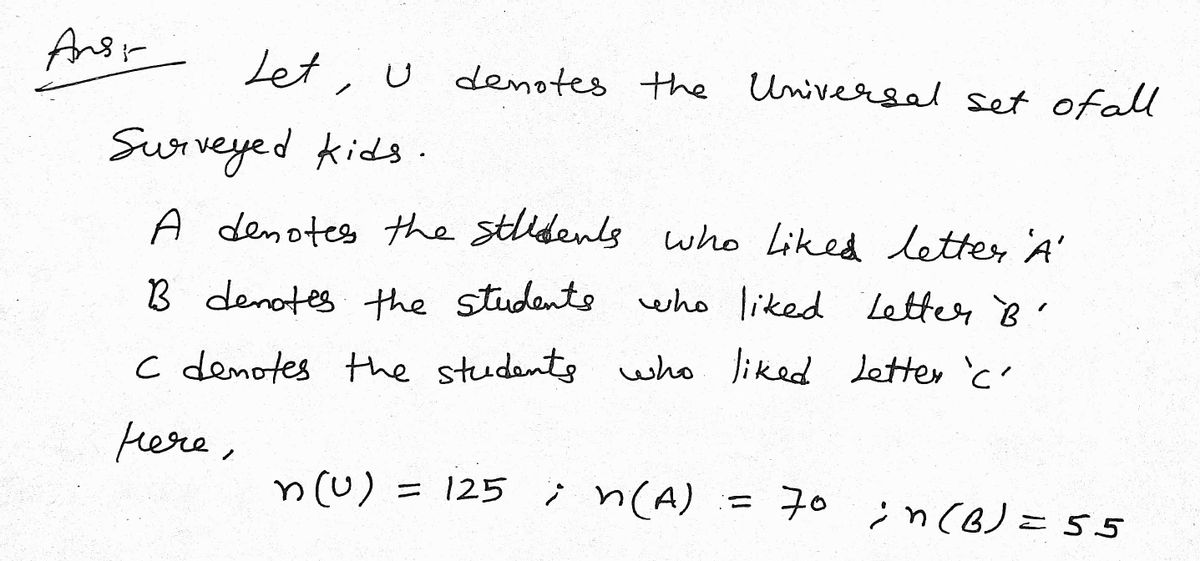 Ans :-
Let, U denotes the Universal set of all
Surveyed kids.
A denotes the students who liked letter 'A'
B denotes the students who liked Letter 'B'
C denotes the students who liked Letter 'C'
Here,
n(U) = 125 ; n(A) = 70 ; n(B) = 55